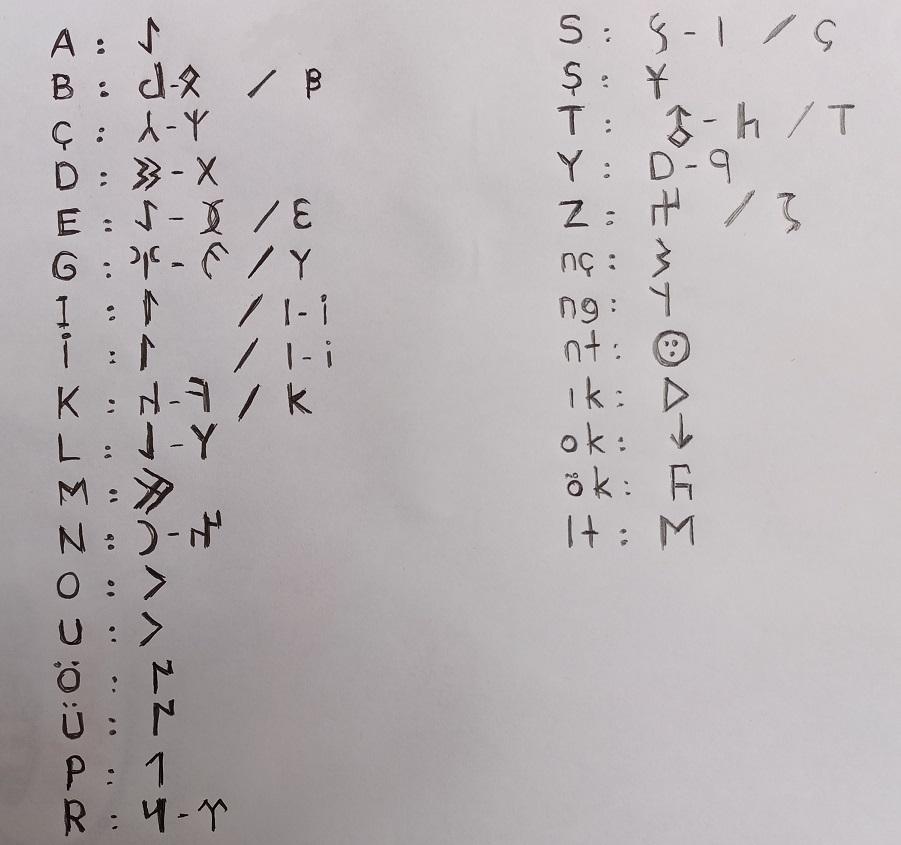 A : 𐰀
B : 𐰉-𐰋 / β
Ç : 𐰲-𐰳
D : 𐰑-𐰓
E : 𐰀-𐰅 / ε
G : 𐰍-𐰏 / Y
I : 𐰃 / I-i
İ : 𐰃 / I-i
K : 𐰴-𐰚 / k
L : 𐰞-𐰠
M : 𐰢
N : 𐰣-𐰤
O : 𐰆
U : 𐰆
Ö : 𐰇
Ü : 𐰇
P : 𐰯
R : 𐰺-𐰼
S : 𐰽-𐰾 / ς
Ş : 𐱁
T : 𐱃-𐱅 / T
Y : 𐰖-𐰘
Z : 𐰔 / ζ
nç : 𐰨
ng : 𐰭
nt : 𐰦
ık : 𐰶
ok : 𐰸
ök : 𐰜
lt : 𐰡